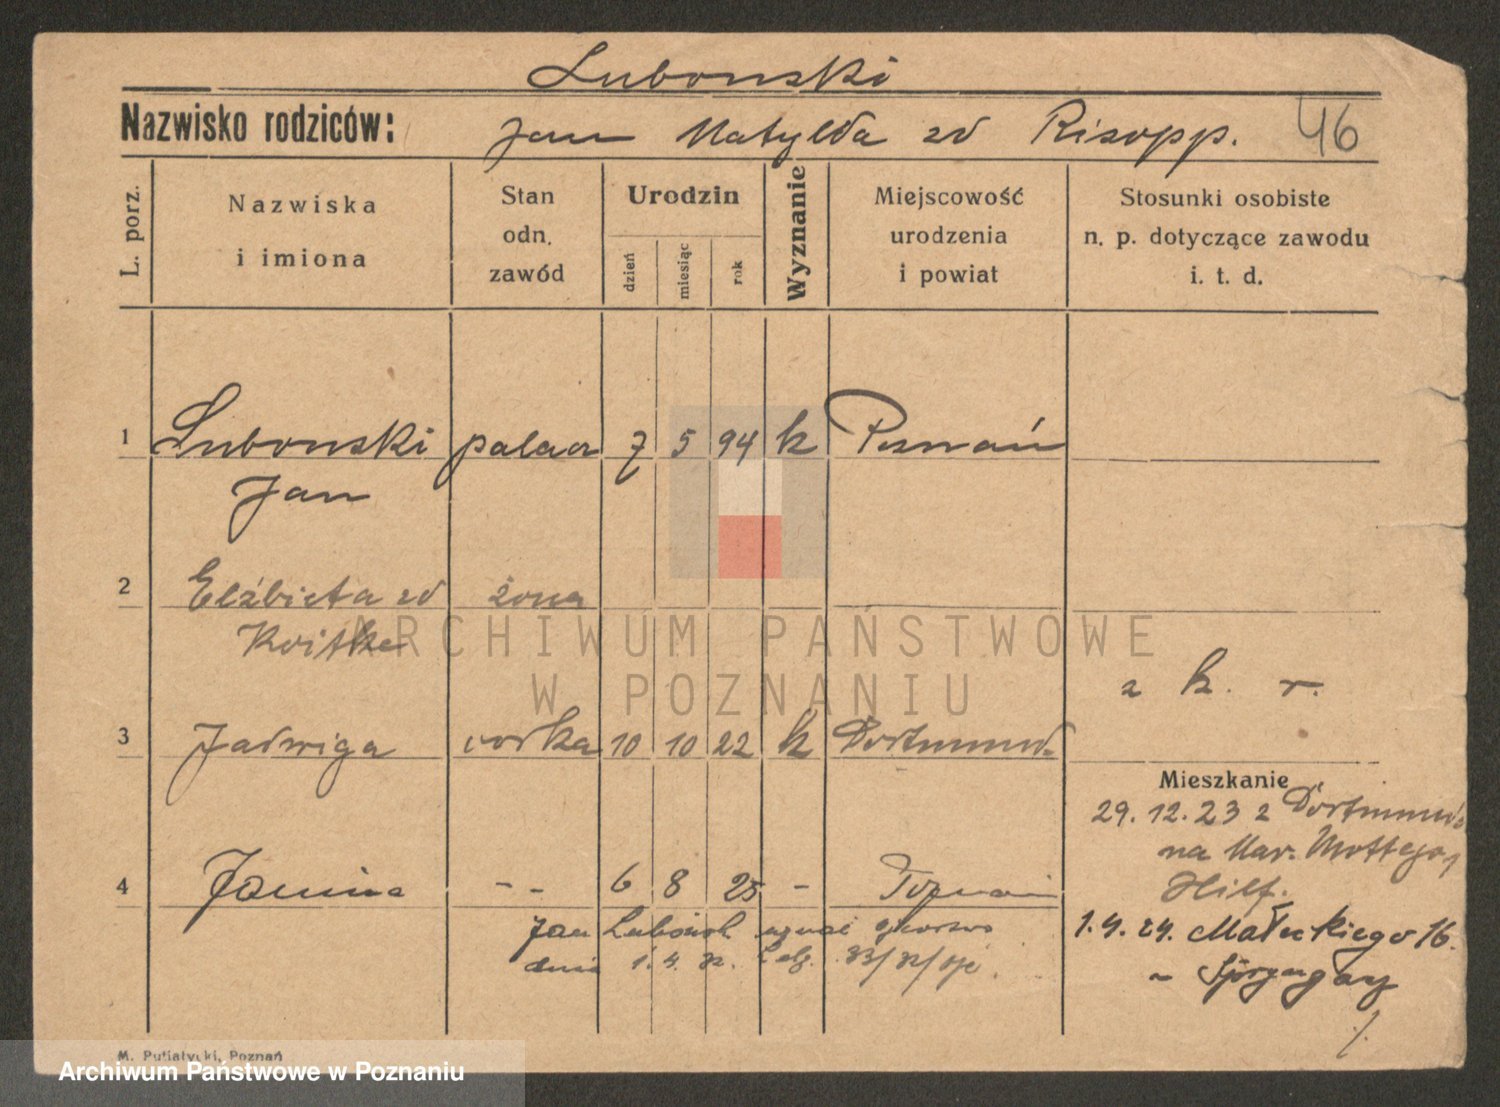 Lubonski
Nazwisko rodziców: Jan Matylda zd Risopp. 46
L. porz.
Nazwiska
i imiona
Stan
odn.
zawód
Urodzin
dzień
miesiąc
rok
Wyznanie
Miejscowość
urodzenia
i powiat
Stosunki osobiste
n. p. dotyczące zawodu
i. t. d.
1 Lubonski palacz 7 5 94 k Poznań
Jan
2 Elżbieta zd żona
Koitke
z k. r.
3 Jadwiga córka 10 10 22 k Dortmund
Mieszkanie
29.12.23 z Dortmund
na Mar. Mottego,
Hilf.
4 Janina - - 6 8 25 - Poznań
1.4.24. Małeckiego 16.
Jan Luboński uznał ojcostwo
dnia 1.4.32.
ARCHIWUM PAŃSTWOWE
W POZNANIU
M. Putiatycki, Poznań
Archiwum Państwowe w Poznaniu